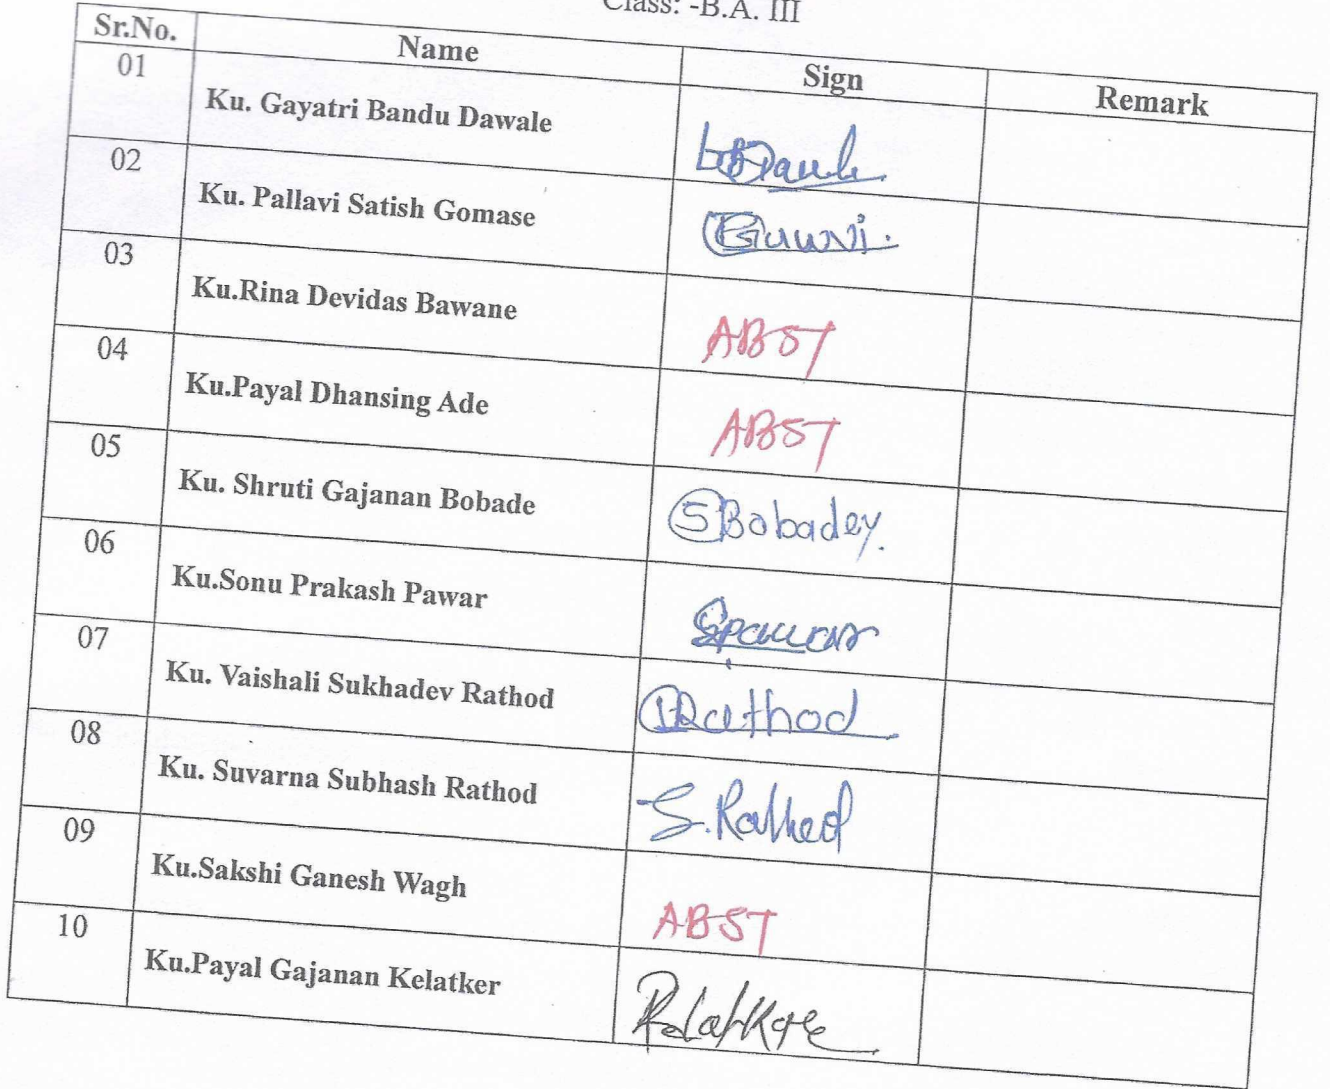 Class: -B.A. III
Sr.No. Name Sign Remark
01 Ku. Gayatri Bandu Dawale
02 Ku. Pallavi Satish Gomase
03 Ku.Rina Devidas Bawane ABST
04 Ku.Payal Dhansing Ade ABST
05 Ku. Shruti Gajanan Bobade SBobadey.
06 Ku.Sonu Prakash Pawar Spawar
07 Ku. Vaishali Sukhadev Rathod Rathod
08 Ku. Suvarna Subhash Rathod S.Rathod
09 Ku.Sakshi Ganesh Wagh ABST
10 Ku.Payal Gajanan Kelatker